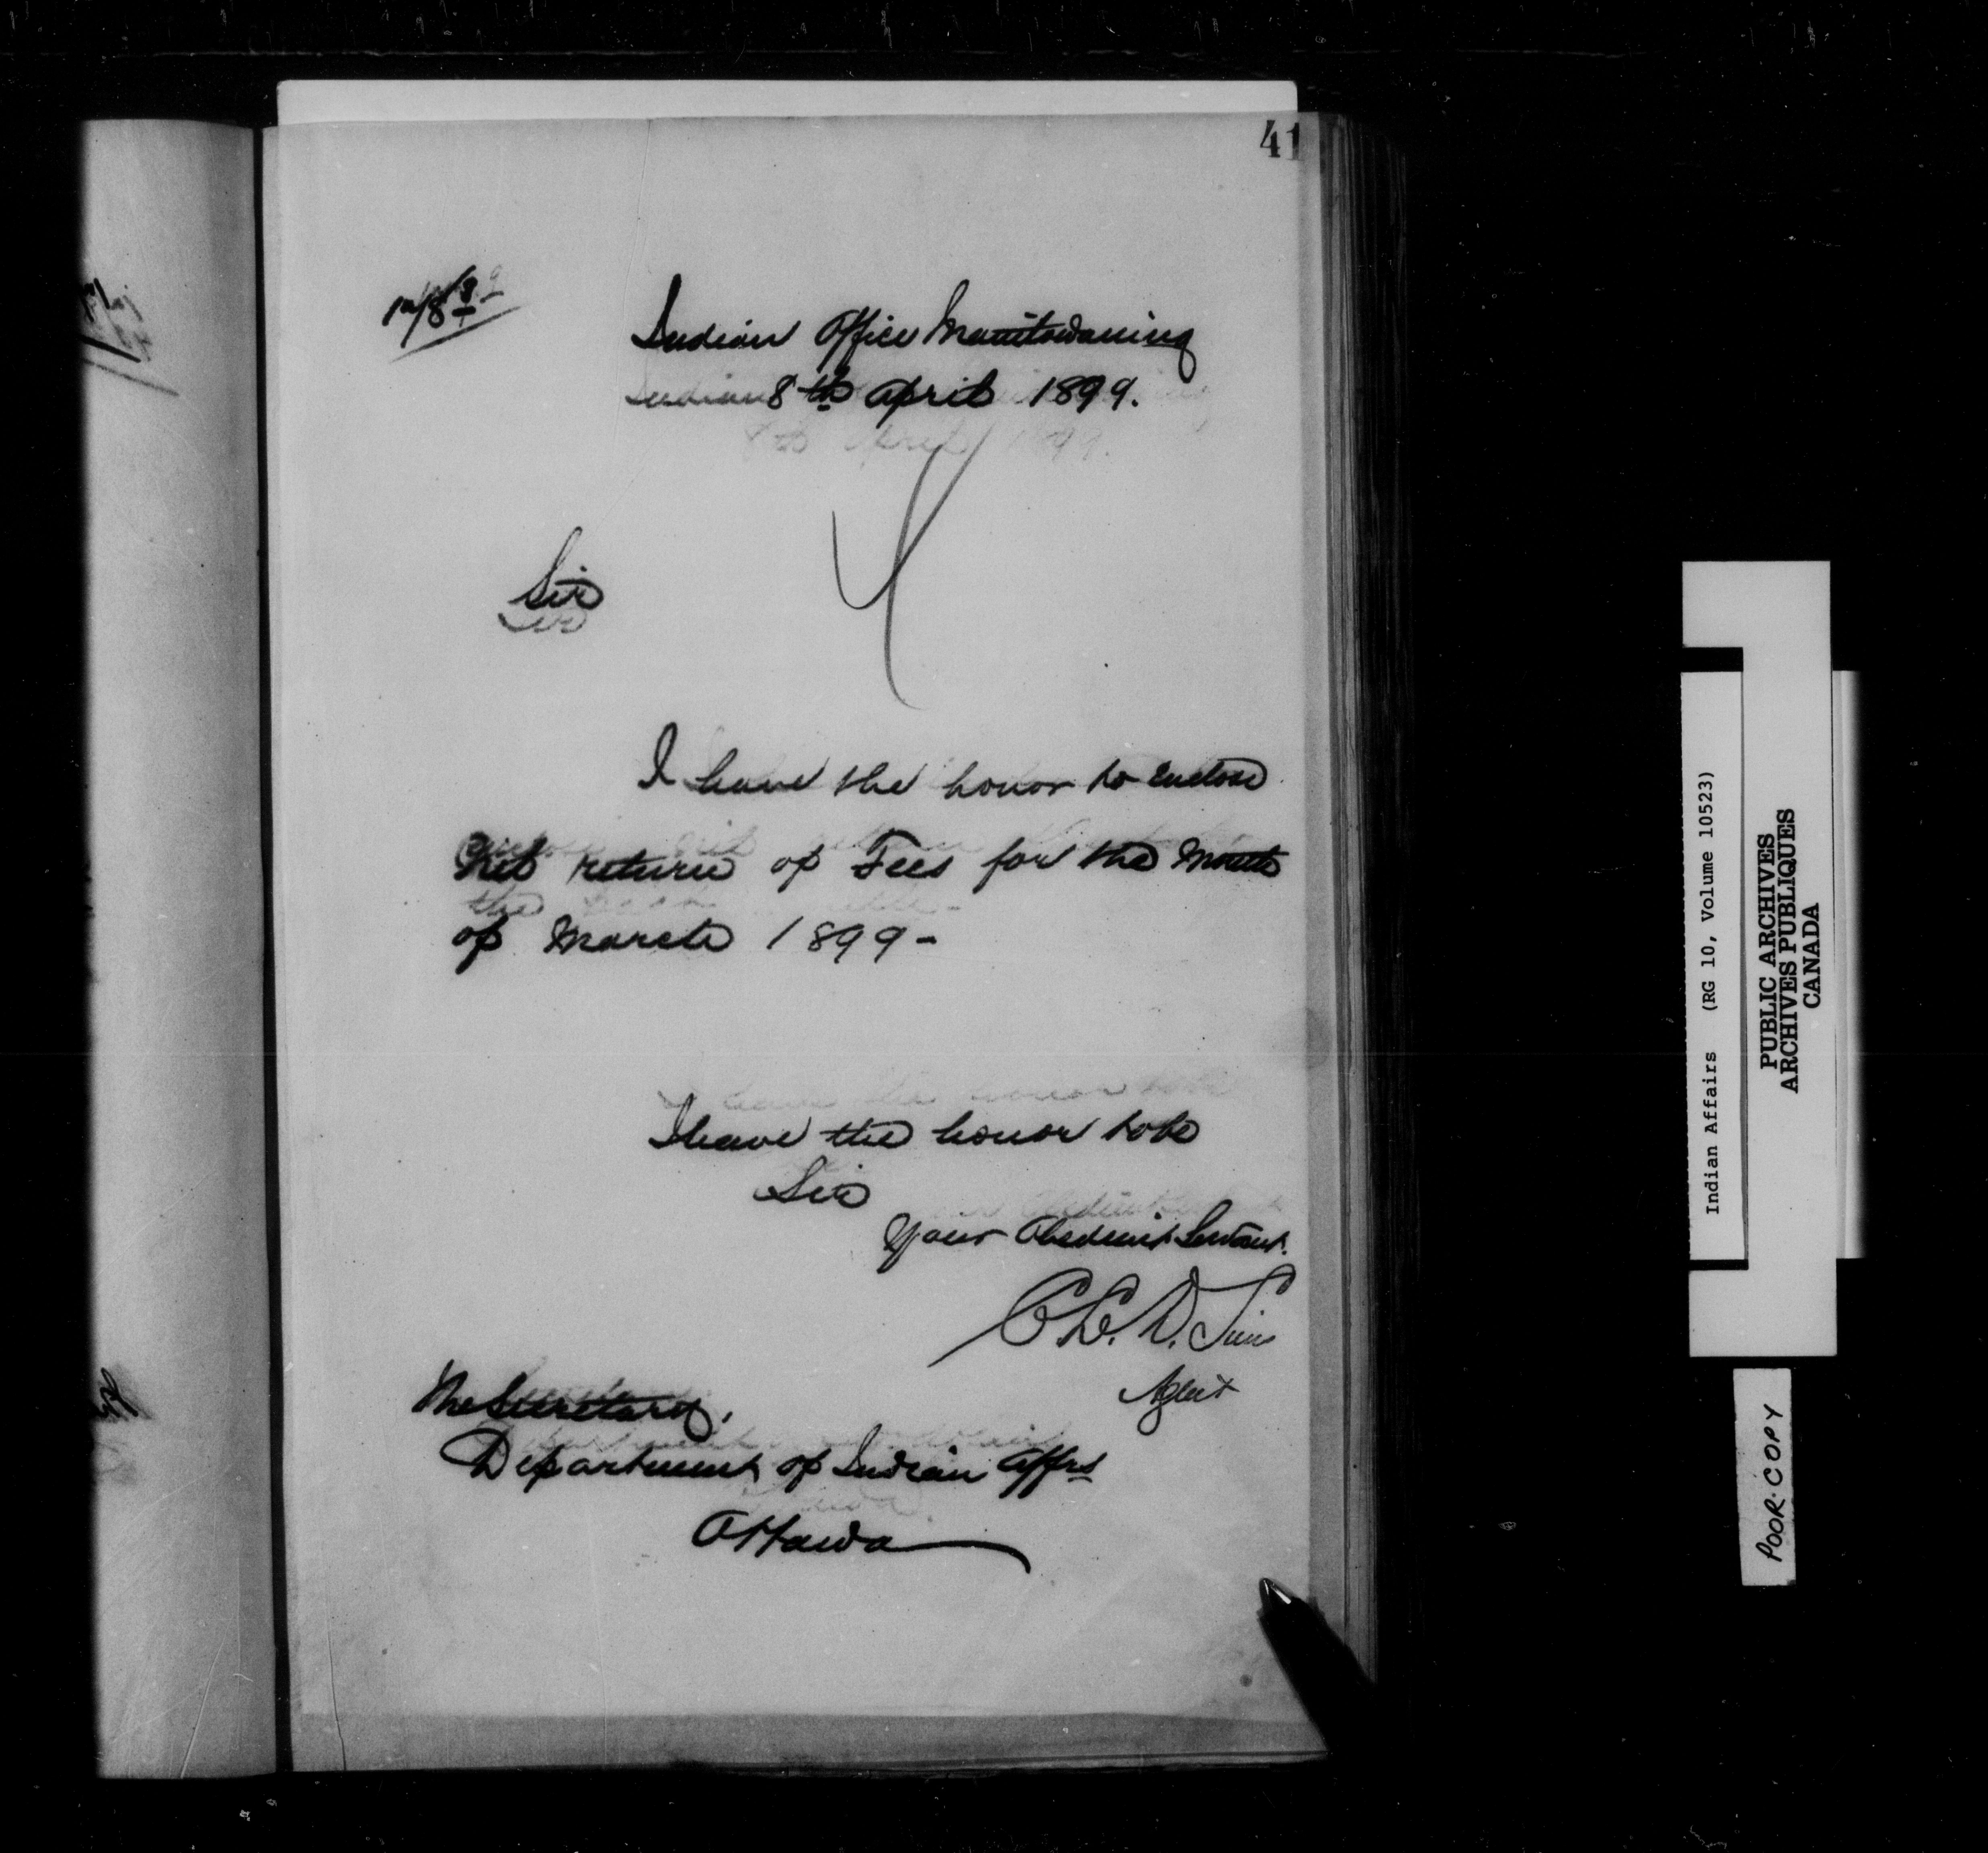 41
Indian Office Manitowaning
8th April 1899.
Sir
I have the honor to enclose
Nil return of Fees for the Month
of March 1899-
I have the honor to be
Sir
Your Obedient Servant.
C.L.D. Sims
Agent
The Secretary,
Department of Indian Affrs
Ottawa
Indian Affairs (RG 10, Volume 10523)
PUBLIC ARCHIVES
ARCHIVES PUBLIQUES
CANADA
POOR COPY